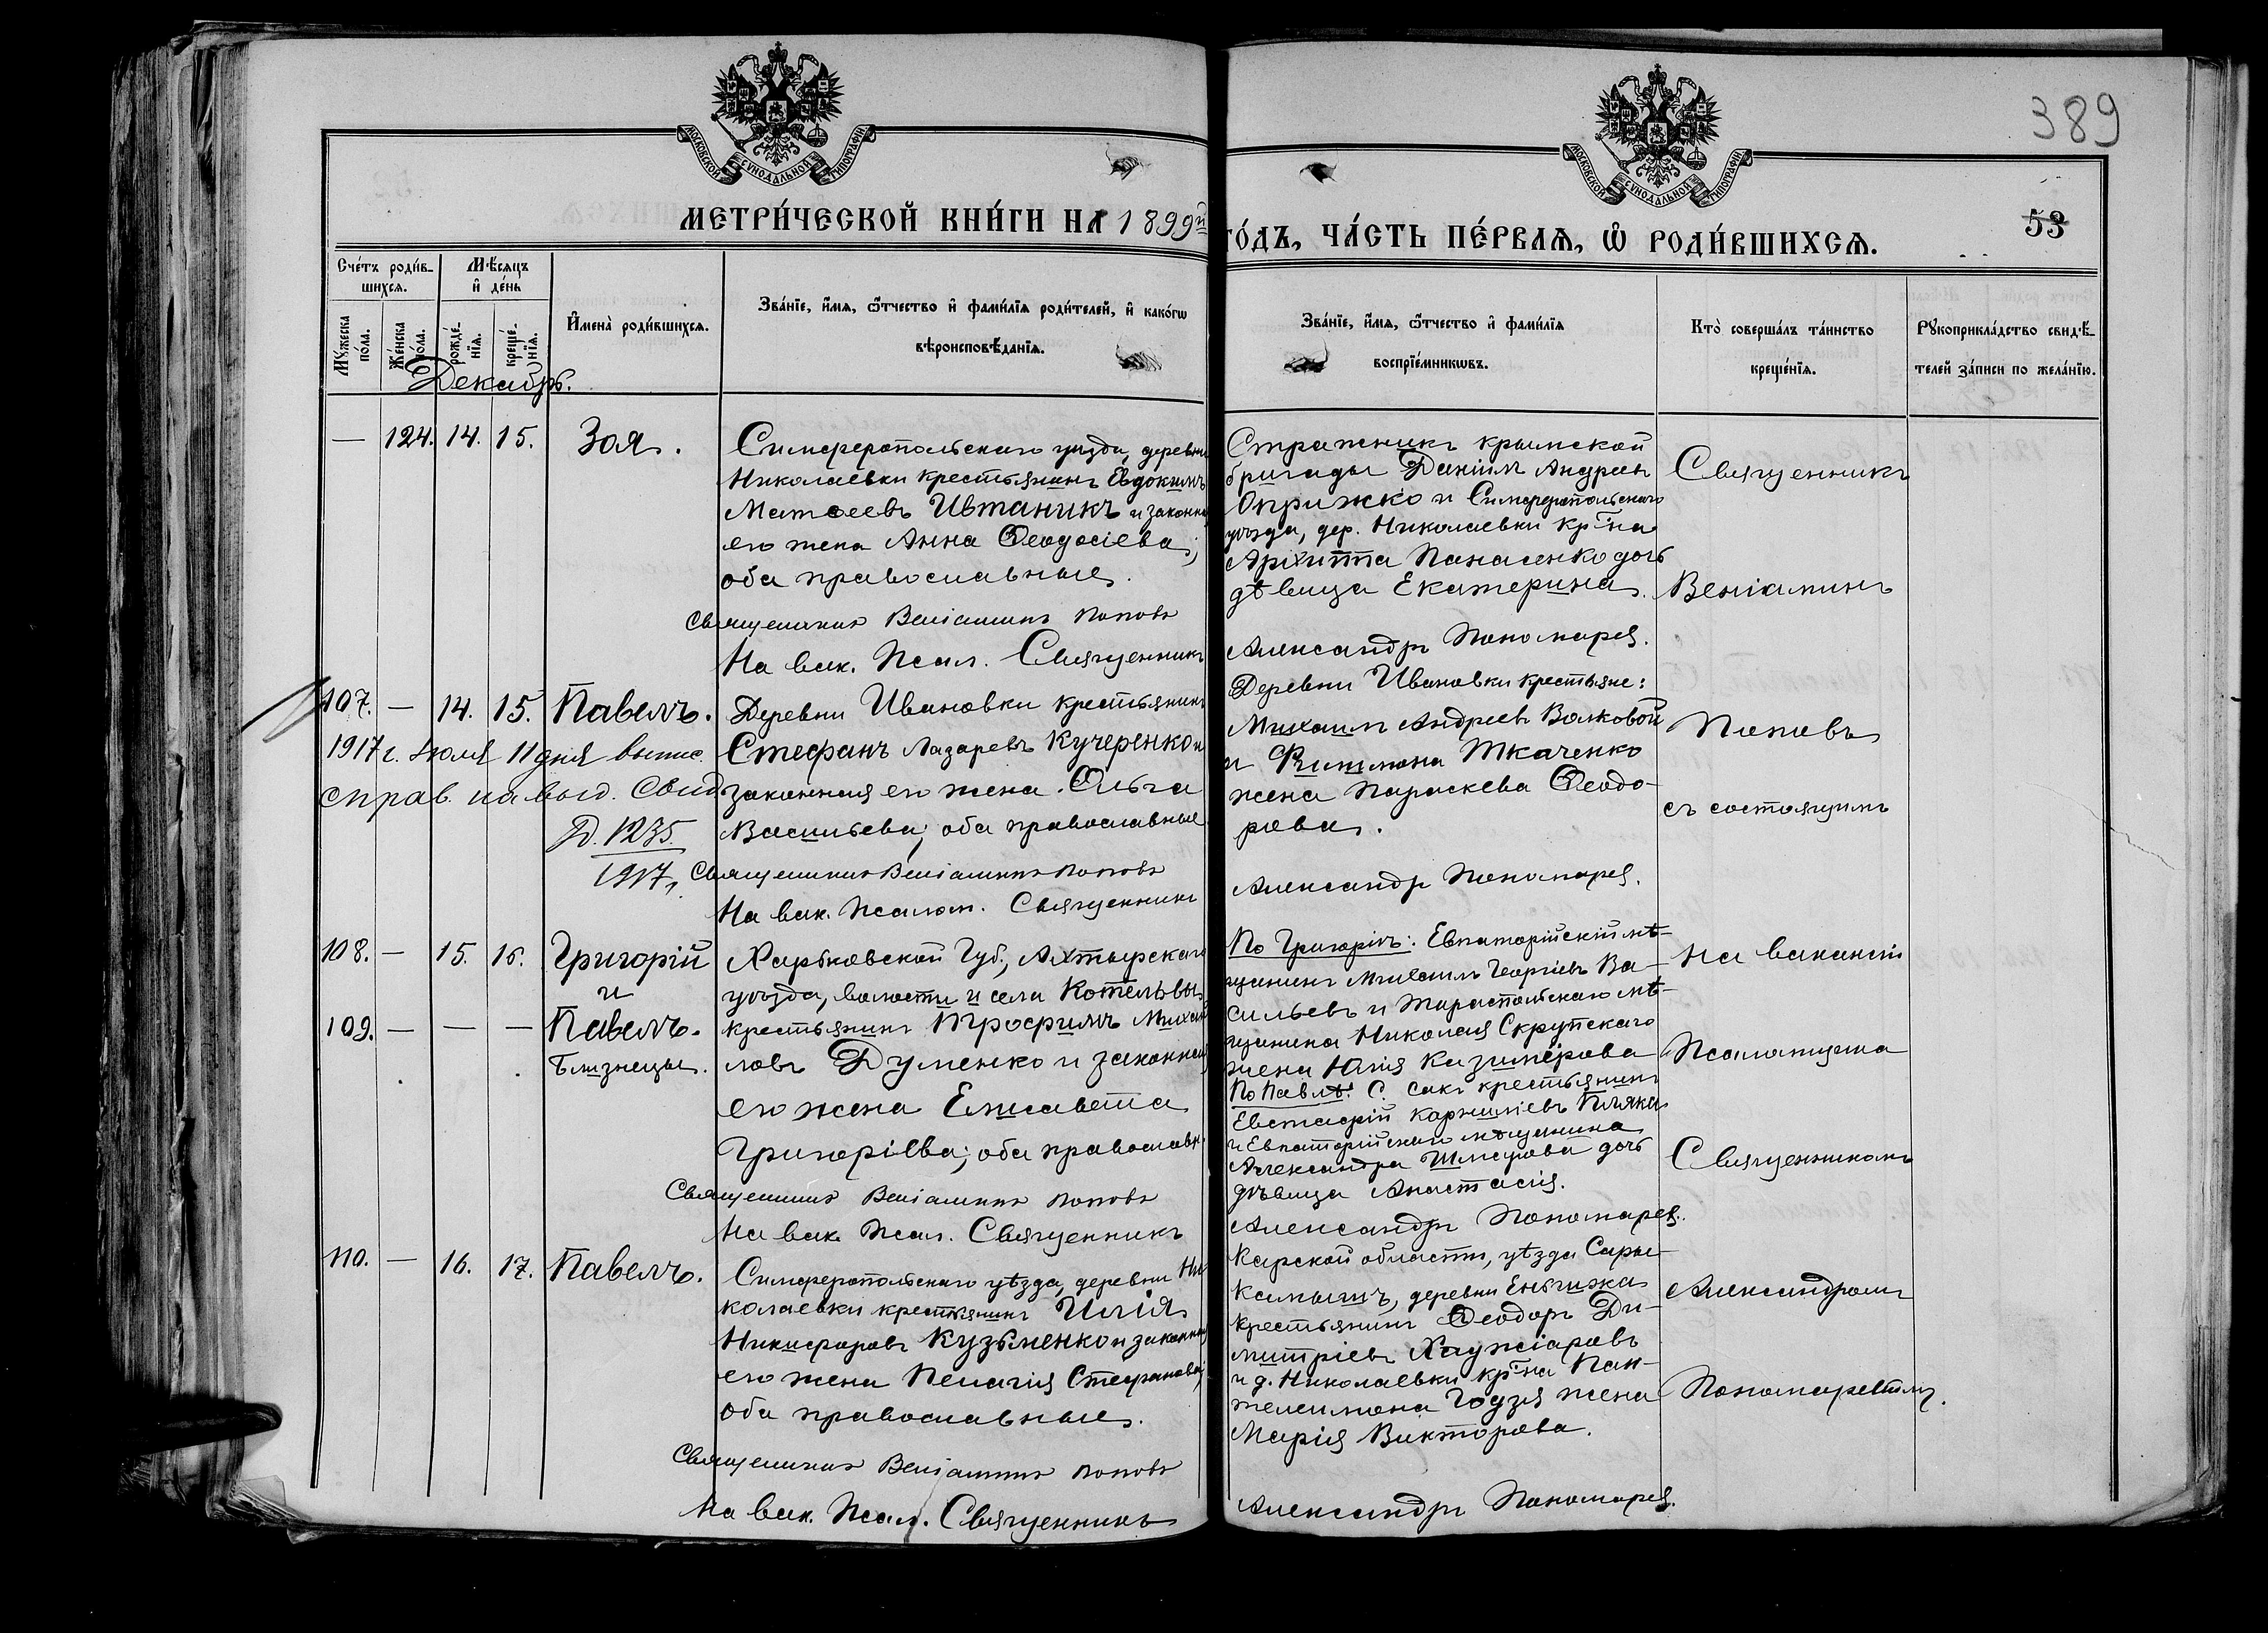 389
МОСКОВСКОЙ СУНОДАЛЬНОЙ ТИПОГРАФІИ
МОСКОВСКОЙ СУНОДАЛЬНОЙ ТИПОГРАФІИ
МЕТРИ́ЧЕСКОЙ КНИ́ГИ НА 1899й
ГО́ДЪ, ЧА́СТЬ ПЕ́РВАѦ, Ѡ҆ РОДИ́ВШИХСѦ.
53
Сче́тъ роди́в-
шихсѧ.
Мѣ́сѧцъ
и҆ де́нь
Мꙋ́жеска
по́ла.
Же́нска
по́ла.
рожде́-
нїѧ.
креще́-
нїѧ.
И҆мена̀ роди́вшихсѧ.
Зва́нїе, и҆́мѧ, ѻ҆́тчество и҆ фами́лїѧ роди́телей, и҆ како́гѡ
вѣроисповѣ́данїѧ.
Зва́нїе, и҆́мѧ, ѻ҆́тчество и҆ фами́лїѧ
воспрїе́мникѡвъ.
Кто̀ соверша́лъ та́инство
креще́нїѧ.
Рꙋкоприкла́дство свидѣ́-
телей за́писи по жела́нїю.
Декабрь.
— 124. 14. 15. Зоя.
Симферопольскаго уѣзда, деревни
Николаевки крестьянинъ Евдокимъ
Матѳеевъ Ивтаникъ и законная
его жена Анна Ѳеодосіева;
оба православные.
Священникъ Веніаминъ Поповъ
На вак. Псал. Священникъ
Стражникъ крымской
бригады Даніилъ Андреевъ
Оприжко и Симферопольскаго
уѣзда, дер. Николаевки кр-на
Архиппа Панасенко дочь
дѣвица Екатерина.
Александръ Пономарев.
107. — 14. 15. Павелъ.
1917 г. Июля 11 дня выпис.
справ. на выд. Свид
Д. 1235.
1917,
Деревни Ивановки крестьянинъ
Стефанъ Лазаревъ Кучеренко и
законная его жена Ольга
Васильева; оба православные
Священникъ Веніаминъ Поповъ
На вак. Псалом. Священникъ
Деревни Ивановки крестьяне:
Михаилъ Андреевъ Волковой
и Филимона Ткаченко
жена Параскева Ѳеодо-
рова.
Александръ Пономарев.
108. — 15. 16. Григорій
и
109. — — — Павелъ.
Близнецы.
Харьковской Губ., Ахтырскаго
уѣзда, волости и села Котельвы
крестьянинъ Трофимъ Михаи
ловъ Думенко и законная
его жена Елисавета
Григоріева; оба православн
Священникъ Веніаминъ Поповъ
На вак. Псал. Священникъ
По Григоріѣ: Евпаторійскій мѣ-
щанинъ Михаилъ Георгіевъ Ва-
сильевъ и Тираспольскаго мѣ-
щанина Николая Скрупскаго
жена Юлія Казимірова
По Павлѣ: С. Сакъ крестьянинъ
Евстафій Корниліевъ Пляка
и Евпаторійскаго мѣщанина
Александра дочь
дѣвица Анастасія.
Александръ Пономарев.
110. — 16. 17. Павелъ.
Симферопольскаго уѣзда, деревни Ни
колаевки крестьянинъ Илія
Никифоровъ Кузьменко и законная
его жена Пелагія Стефанова;
оба православные.
Священникъ Веніаминъ Поповъ
На вак. Псал. Священникъ
Карской области, уѣзда Сары-
камышъ, деревни Еньгижа
крестьянинъ Ѳеодоръ Ди-
митріевъ Хаужіаровъ
и д. Николаевки кр-на Пан-
телеимона Годзя жена
Марія Викторова.
Александръ Пономарев.
Священникъ
Веніаминъ
Поповъ
съ состоящимъ
на вакансіи
Псаломщика
Священникомъ
Александромъ
Пономаревымъ.